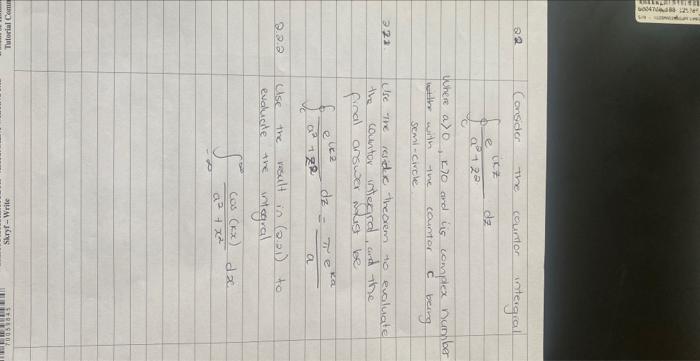 22 Consider the countor intergral
∮_C e^{ikz} / a² + z² dz
Where a>0, k>0 and is complex number
with the countor C being
semi-circle.
221. Use the residue theorem to evaluate
the countor intergral, and the
final answer must be
∮_C e^{ikz} / a² + z² dz = π e^{ka} / a
222 Use the result in (221) to
evaluate the integral
∫_{-∞}^{∞} cos (kx) / a² + x² dx
Skryf - Write